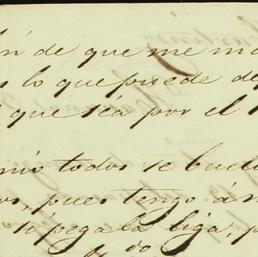 ón de que me ma
s lo que puede de
que sea por el
mo todos se buel
os, pues tengo á m
te pega la liga, p
do